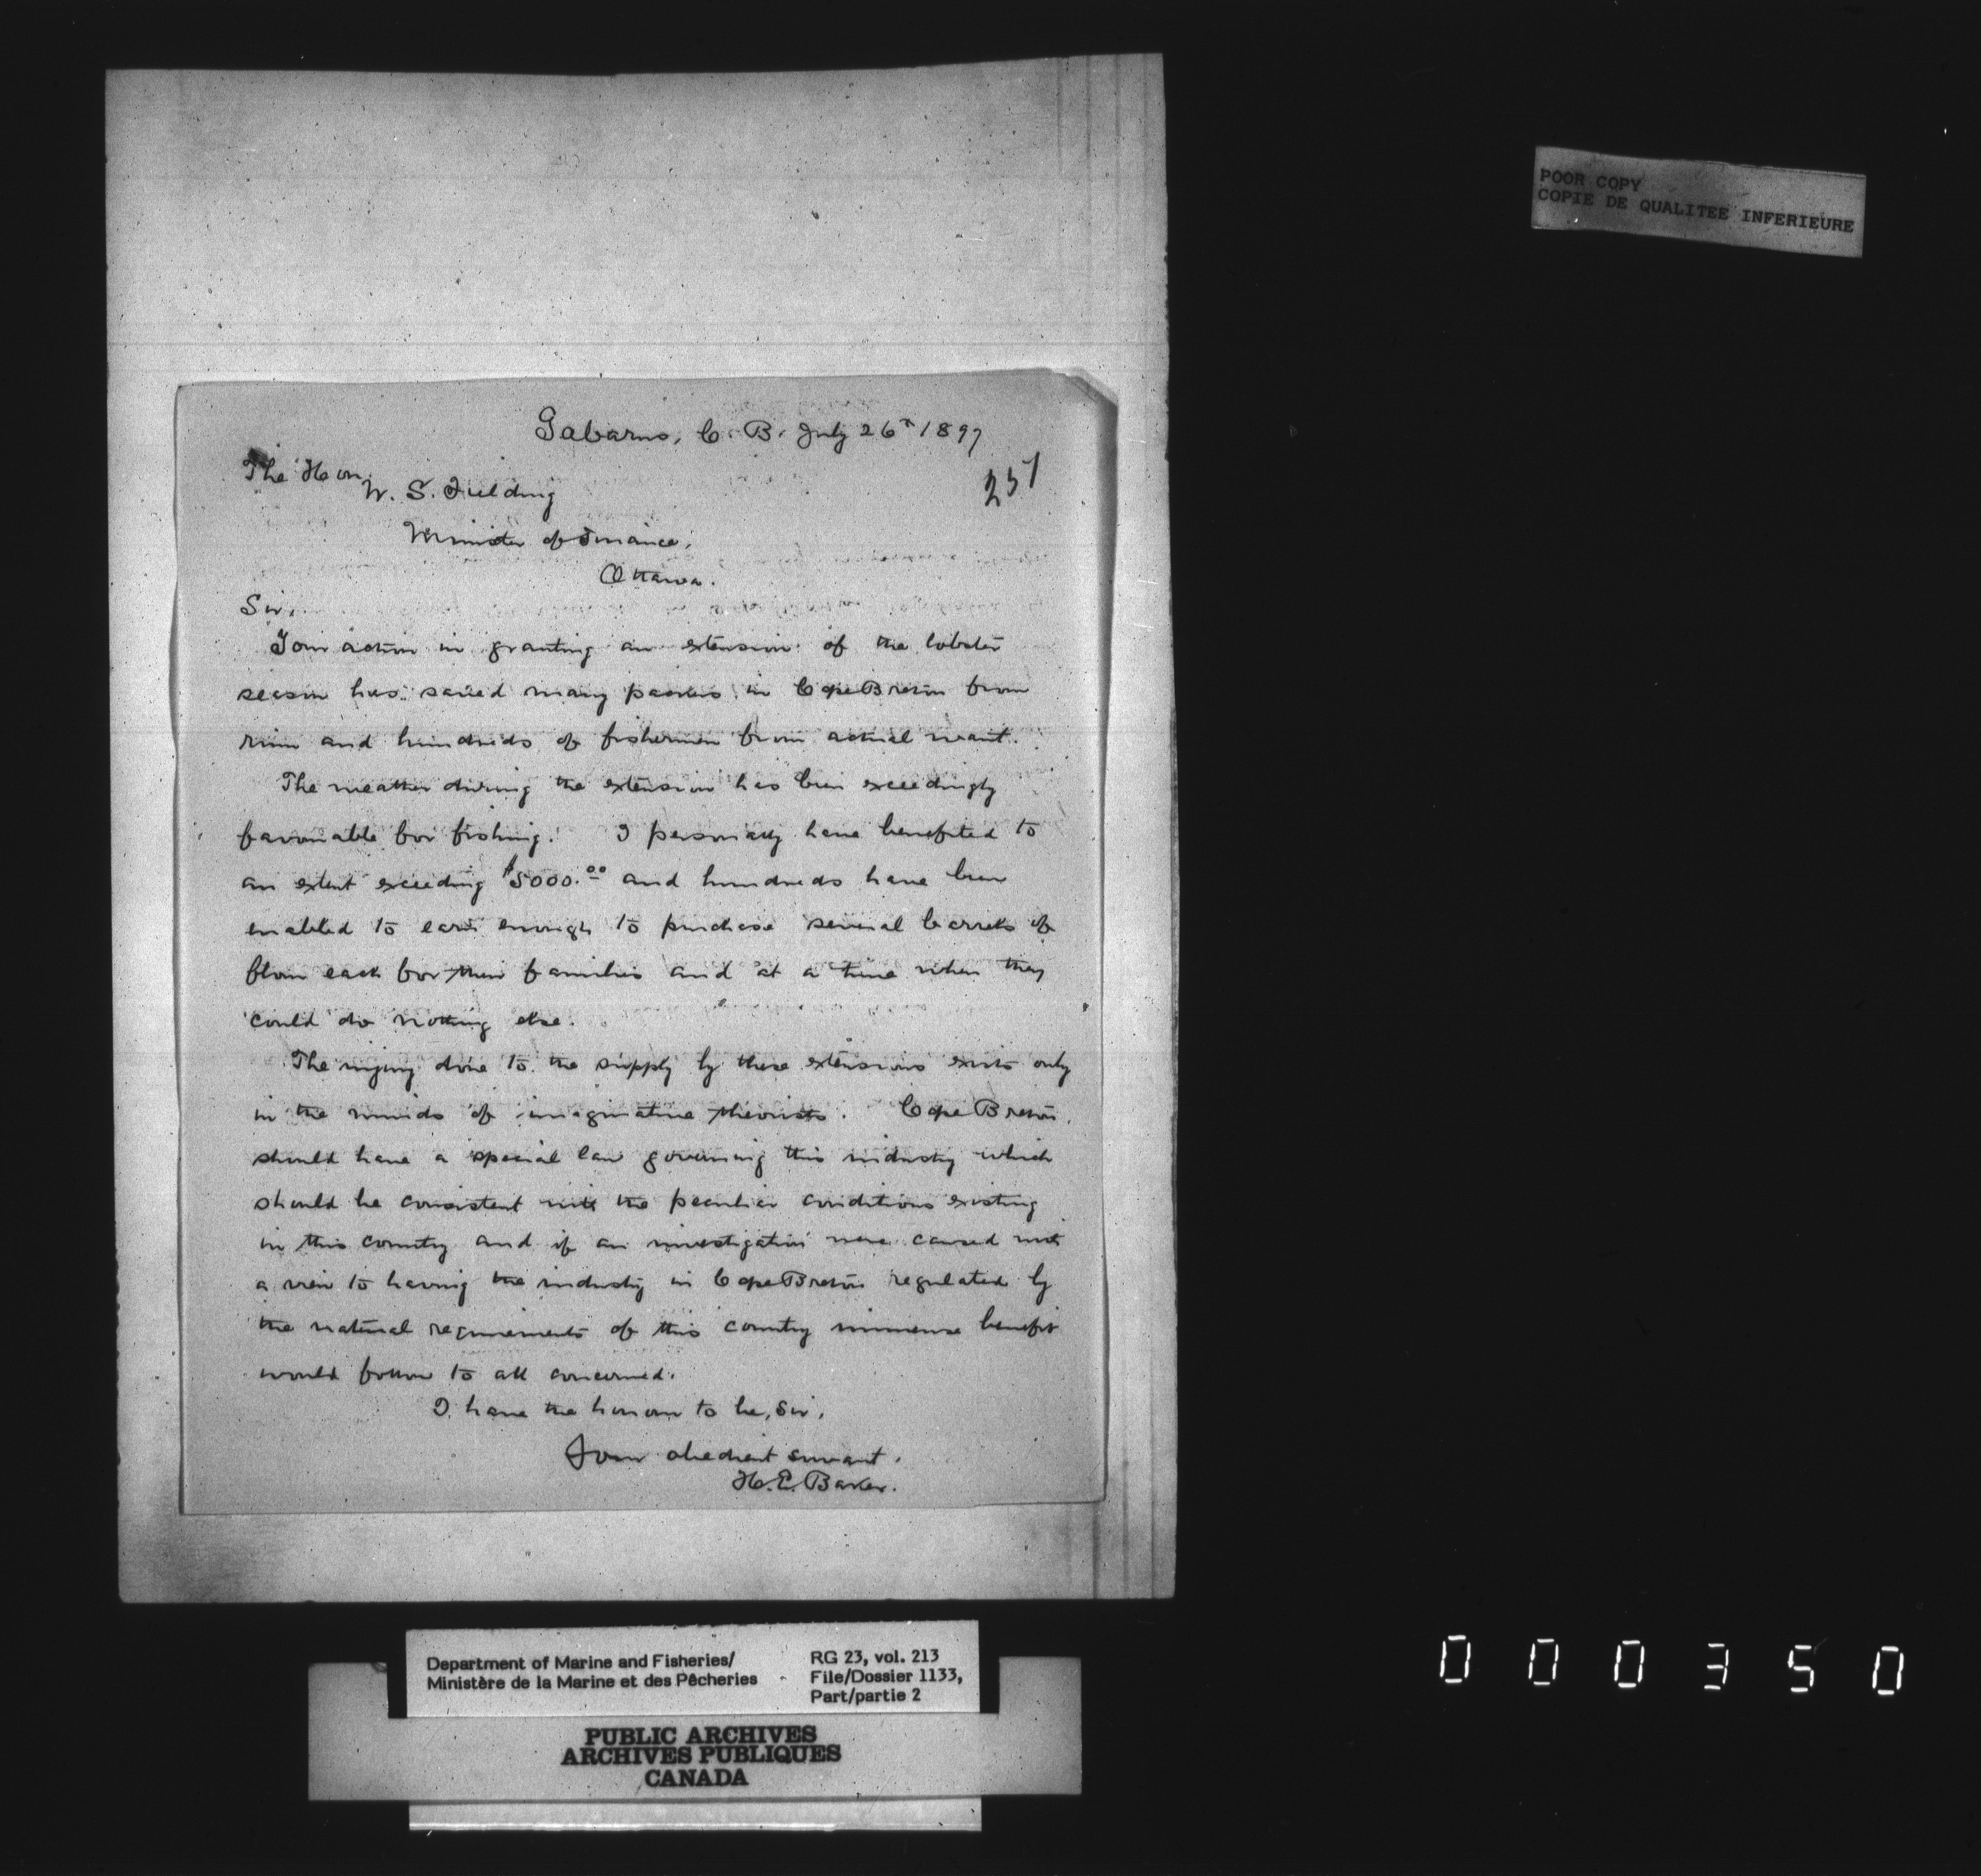 POOR COPY
COPIE DE QUALITEE INFERIEURE
Gabarus, C. B. July 26th 1897
251
The Hon.
W. S. Fielding
Minister of Finance,
Ottawa.
Sir,
Your action in granting an extension of the lobster
season has saved many packers in Cape Breton from
ruin and hundreds of fishermen from actual want.
The weather during the extension has been exceedingly
favourable for fishing. I personally have benefited to
an extent exceeding $5000.00 and hundreds have been
enabled to earn enough to purchase several barrels of
flour each for their families and at a time when they
could do nothing else.
The injury done to the supply by these extensions exists only
in the minds of imaginative theorists. Cape Breton
should have a special law governing this industry which
should be consistent with the peculiar conditions existing
in this country and if an investigation were caused with
a view to having the industry in Cape Breton regulated by
the natural requirements of this country immense benefit
would follow to all concerned.
I have the honour to be, Sir,
Your obedient servant,
H. E. Baker.
Department of Marine and Fisheries/
Ministère de la Marine et des Pêcheries
RG 23, vol. 213
File/Dossier 1133,
Part/partie 2
PUBLIC ARCHIVES
ARCHIVES PUBLIQUES
CANADA
000350